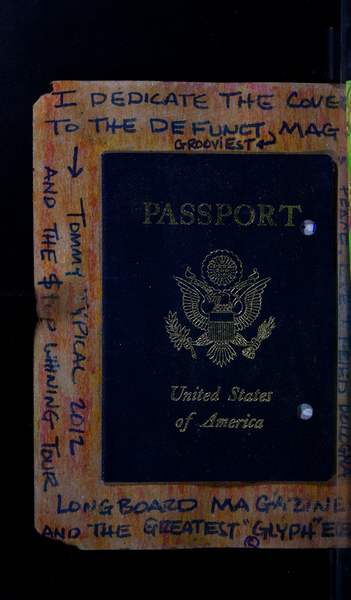 I DEDICATE THE COVE
TO THE DEFUNCT, MAG
GROOVIEST
PASSPORT
United States
of America
→ TOMMY TYPICAL 2012
AND THE $TOP WHINING TOUR
LONGBOARD MAGAZINE
AND THE GREATEST "GLYPH" E
©